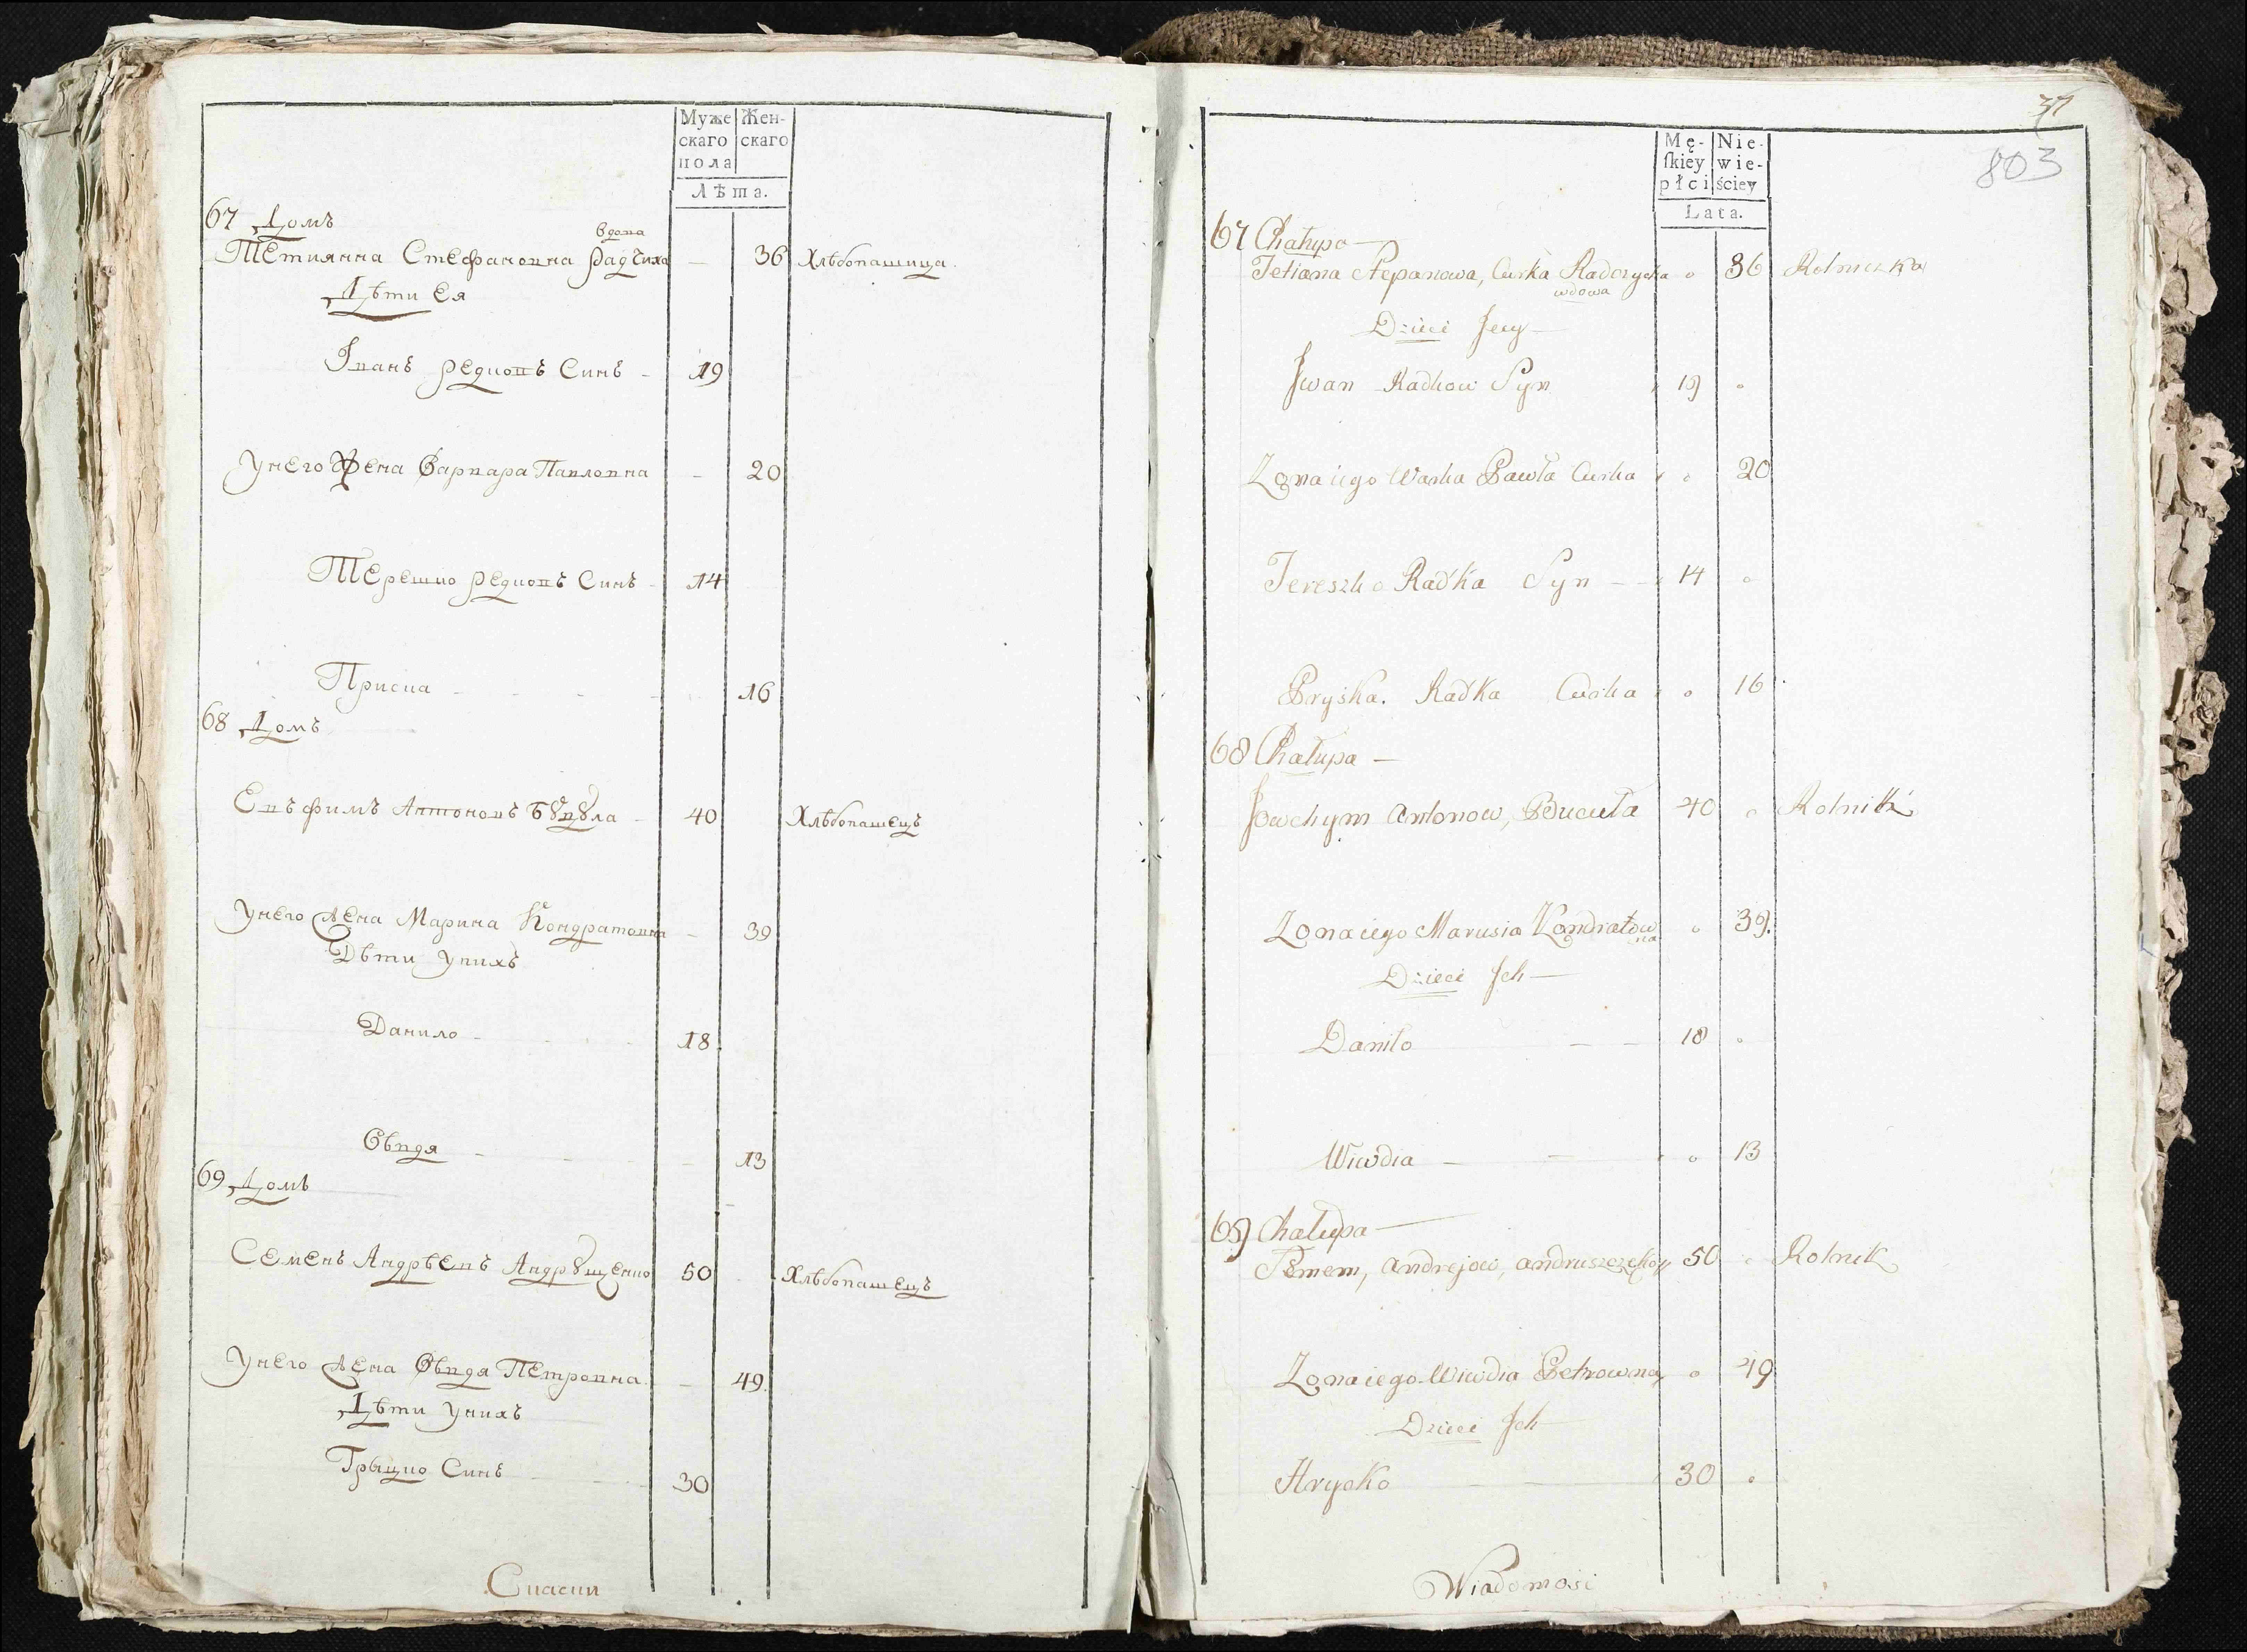 Муже Жен-
скаго скаго
пола
Лѣта.
67 Домъ
вдова
Тетиянна Стефановна Радчиха — 36 Хлѣбопашица.
Дѣти Ея
Іванъ Редковъ Синъ - 19
Унего Жена Варвара Павловна - 20
Терешко Редковъ Синъ - 14
Приска - - - - 16
68 Домъ
Евъфимъ Антоновъ Бꙋцꙋла - 40 Хлѣбопашецъ
Унего Жена Марина Кондратовна - 39
Дѣти Унихъ
Данило - 18
Овъдя - - - 13
69 Домъ
Семенъ Андрѣевъ Андрꙋщенко 50 Хлѣбопашецъ
Унего Жена Овъдя Петровна. - 49.
Дѣти Унихъ
Грыцко Синъ 30
37
803
Mę- Nie-
ſkiey wie-
płci ściey
Lata.
67 Chałupa —
Tetiana Stepanowa, Curka Radczycha o 36 Rolniczka
wdowa
Dzieci Jeiy —
Jwan Radkow Syn 19 o
Zona iego Warka Pawła Curka o 20
Tereszko Radka Syn — 14 o
Pryska. Radka Curka o 16
68 Chałupa —
Jowchym Antonow, Bucuła 40 o Rolnik
Zona iego Marusia Kondratow o 39.
na
Dzieci Jch —
Daniło — — 18 o
Wiwdia — — o 13
69 Chałupa —
Semem, Andrejow, Andruszczeko 50 o Rolnik
Zona iego Wiwdia Petrowna, o 49
Dzieci Jch
Hrycko — 30 o
Wiadomosc